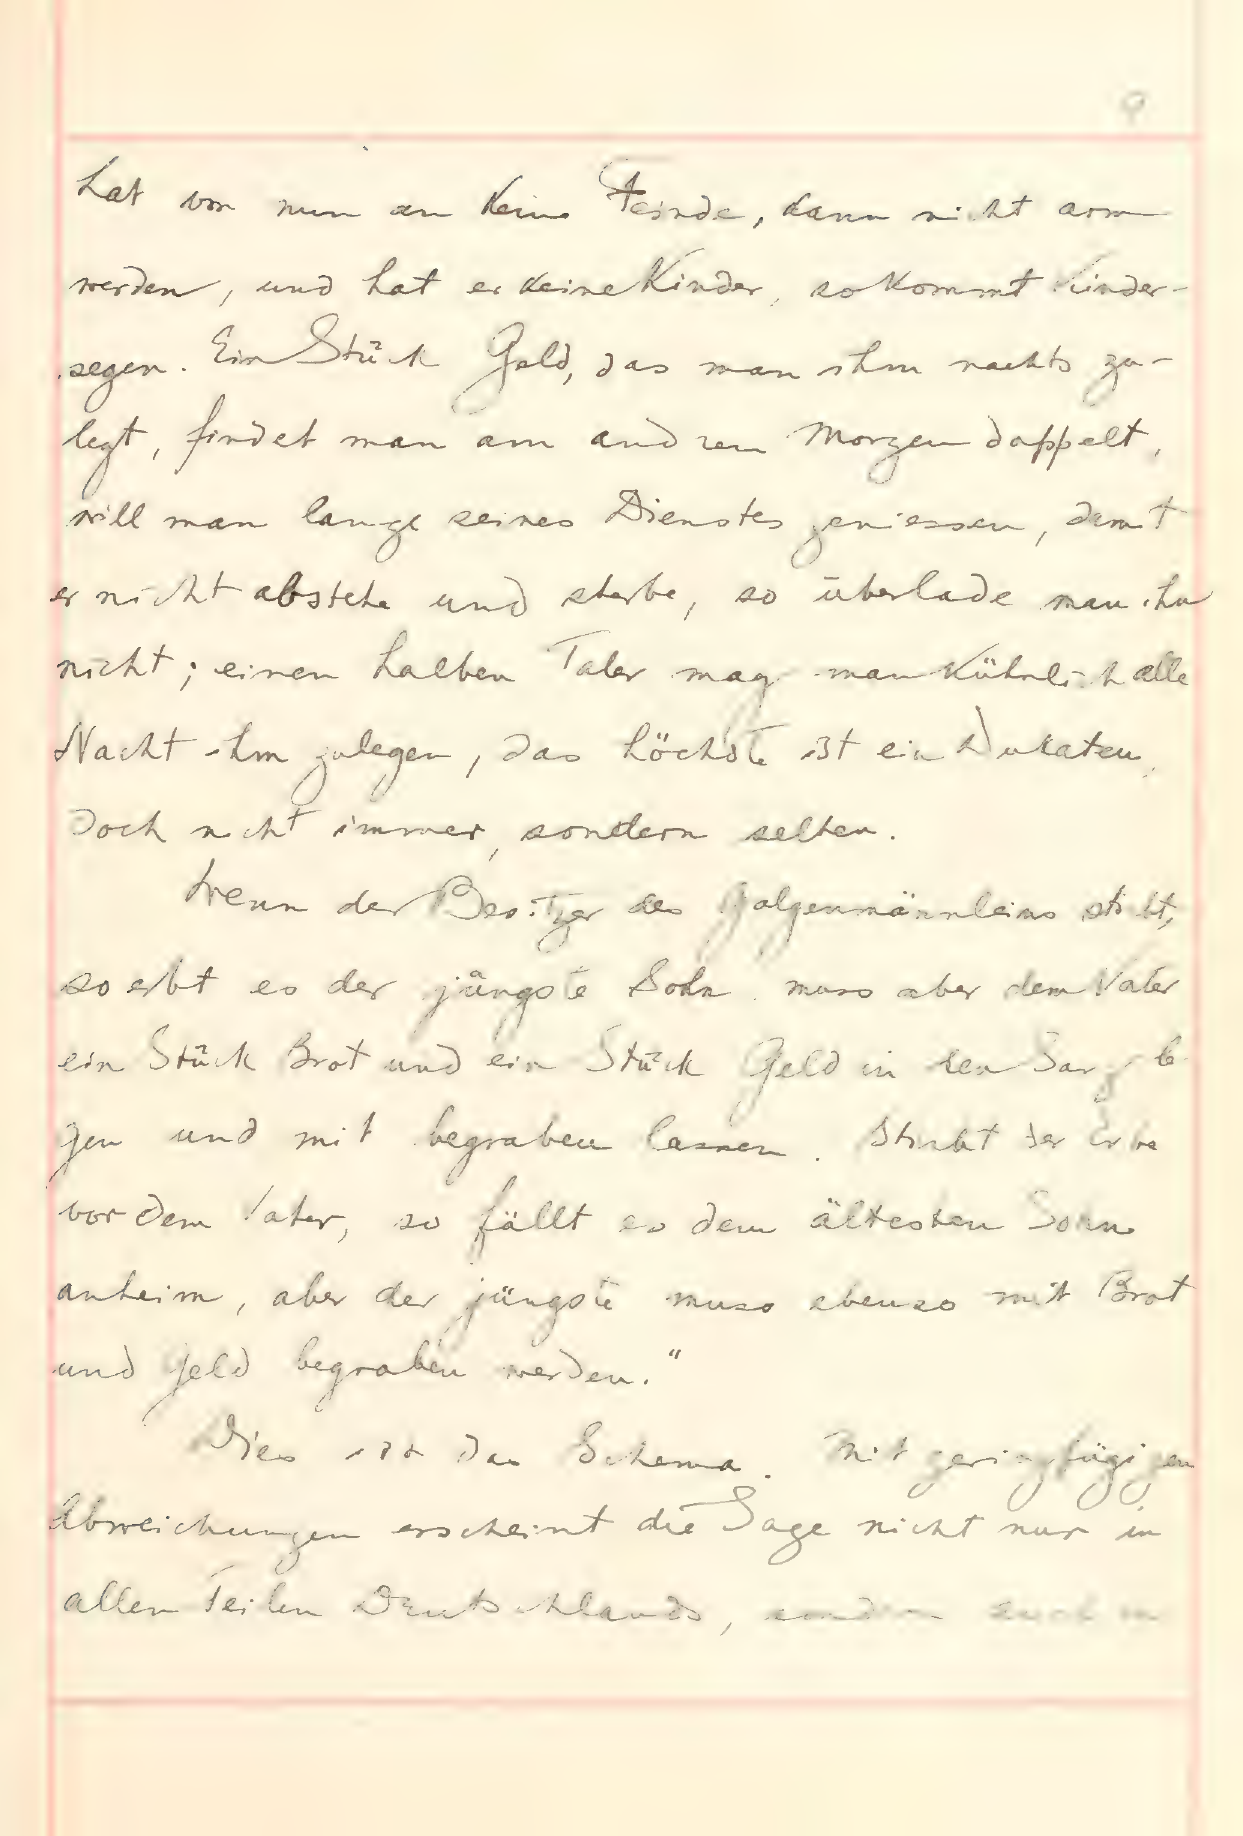 9
hat von nun an keine Feinde, kann nicht arm
werden, und hat er keine Kinder, so kommt Kinder-
segen. Ein Stück Geld, das man ihm nachts zu-
legt, findet man am andren Morgen doppelt,
will man lange seines Dienstes geniessen, damit
er nicht abstehe und sterbe, so überlade man ihn
nicht; einen halben Taler mag man kühnlich alle
Nacht ihm zulegen, das höchste ist ein Dukaten,
doch nicht immer, sondern selten.
Wenn der Besitzer des Galgenmännleins stirbt,
so erbt es der jüngste Sohn, muss aber dem Vater
ein Stück Brot und ein Stück Geld in den Sarg le-
gen und mit begraben lassen. Stirbt der Erbe
vor dem Vater, so fällt es dem ältesten Sohne
anheim, aber der jüngste muss ebenso mit Brot
und Geld begraben werden."
Dies ist das Schema. Mit geringfügigen
Abweichungen erscheint die Sage nicht nur in
allen Teilen Deutschlands, sondern auch in